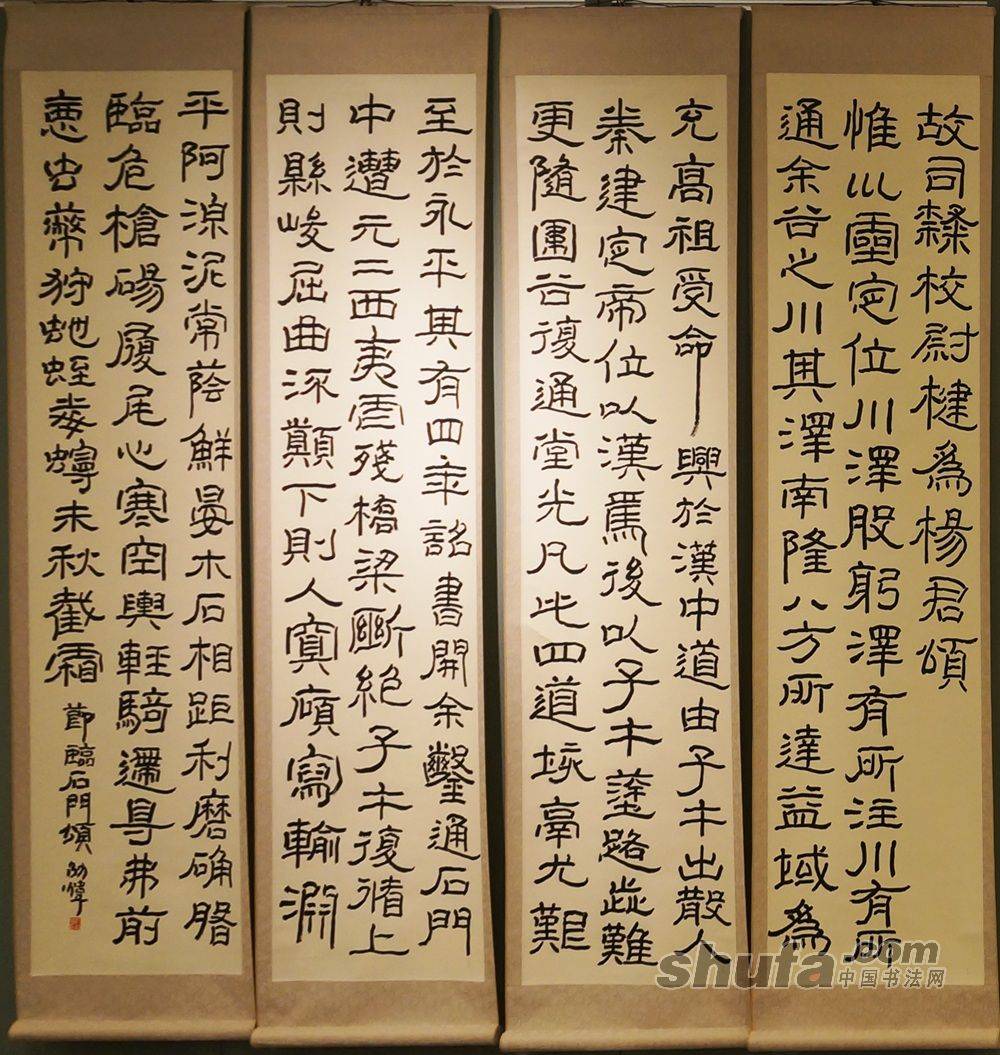 故司隸校尉楗為楊君頌
惟巛靈定位川澤股躬澤有所注川有所
通余谷之川其澤南隆八方所達益域為
充高祖受命興於漢中道由子午出散入
秦建定帝位以漢焉後以子午塗路歮難
更隨圍谷復通堂光凡此四道垓鬲尤艱
至於永平其有四年詔書開余鑿通石門
中遭元二西夷虐殘橋梁斷絕子午復循上
則縣峻屈曲流顛下則入冥廎寫輸淵
平阿湶泥常蔭鮮晏木石相距利磨确磐
臨危槍碭履尾心寒空輿輕騎遰㝵弗前
惡虫蔽狩虵蛭毒蟃未秋截霜
節臨石門頌
shufa.com
中国书法网